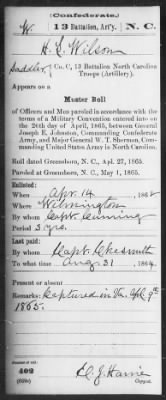 (Confederate.)
W. 13 Battalion, Art'y. N. C.
H. L. Wilson
Saddler, Co. C, 13 Battalion North Carolina
Troops (Artillery).
Appears on a
Muster Roll
of Officers and Men paroled in accordance with the
terms of a Military Convention entered into on
the 26th day of April, 1865, between General
Joseph E. Johnston, Commanding Confederate
Army, and Major General W. T. Sherman, Com-
manding United States Army in North Carolina.
Roll dated Greensboro, N. C., Apl. 27, 1865.
Paroled at Greensboro, N. C., May 1, 1865.
Enlisted:
When Apr. 14, 1862
Where Wilmington
By whom Capt. Cuming
Period 3 yrs.
Last paid:
By whom Capt.
To what time Aug 31, 1864.
Present or absent
Remarks: Captured in Va. Apl. 9th
1865.
Number of roll:
402
(639c) Copyist.